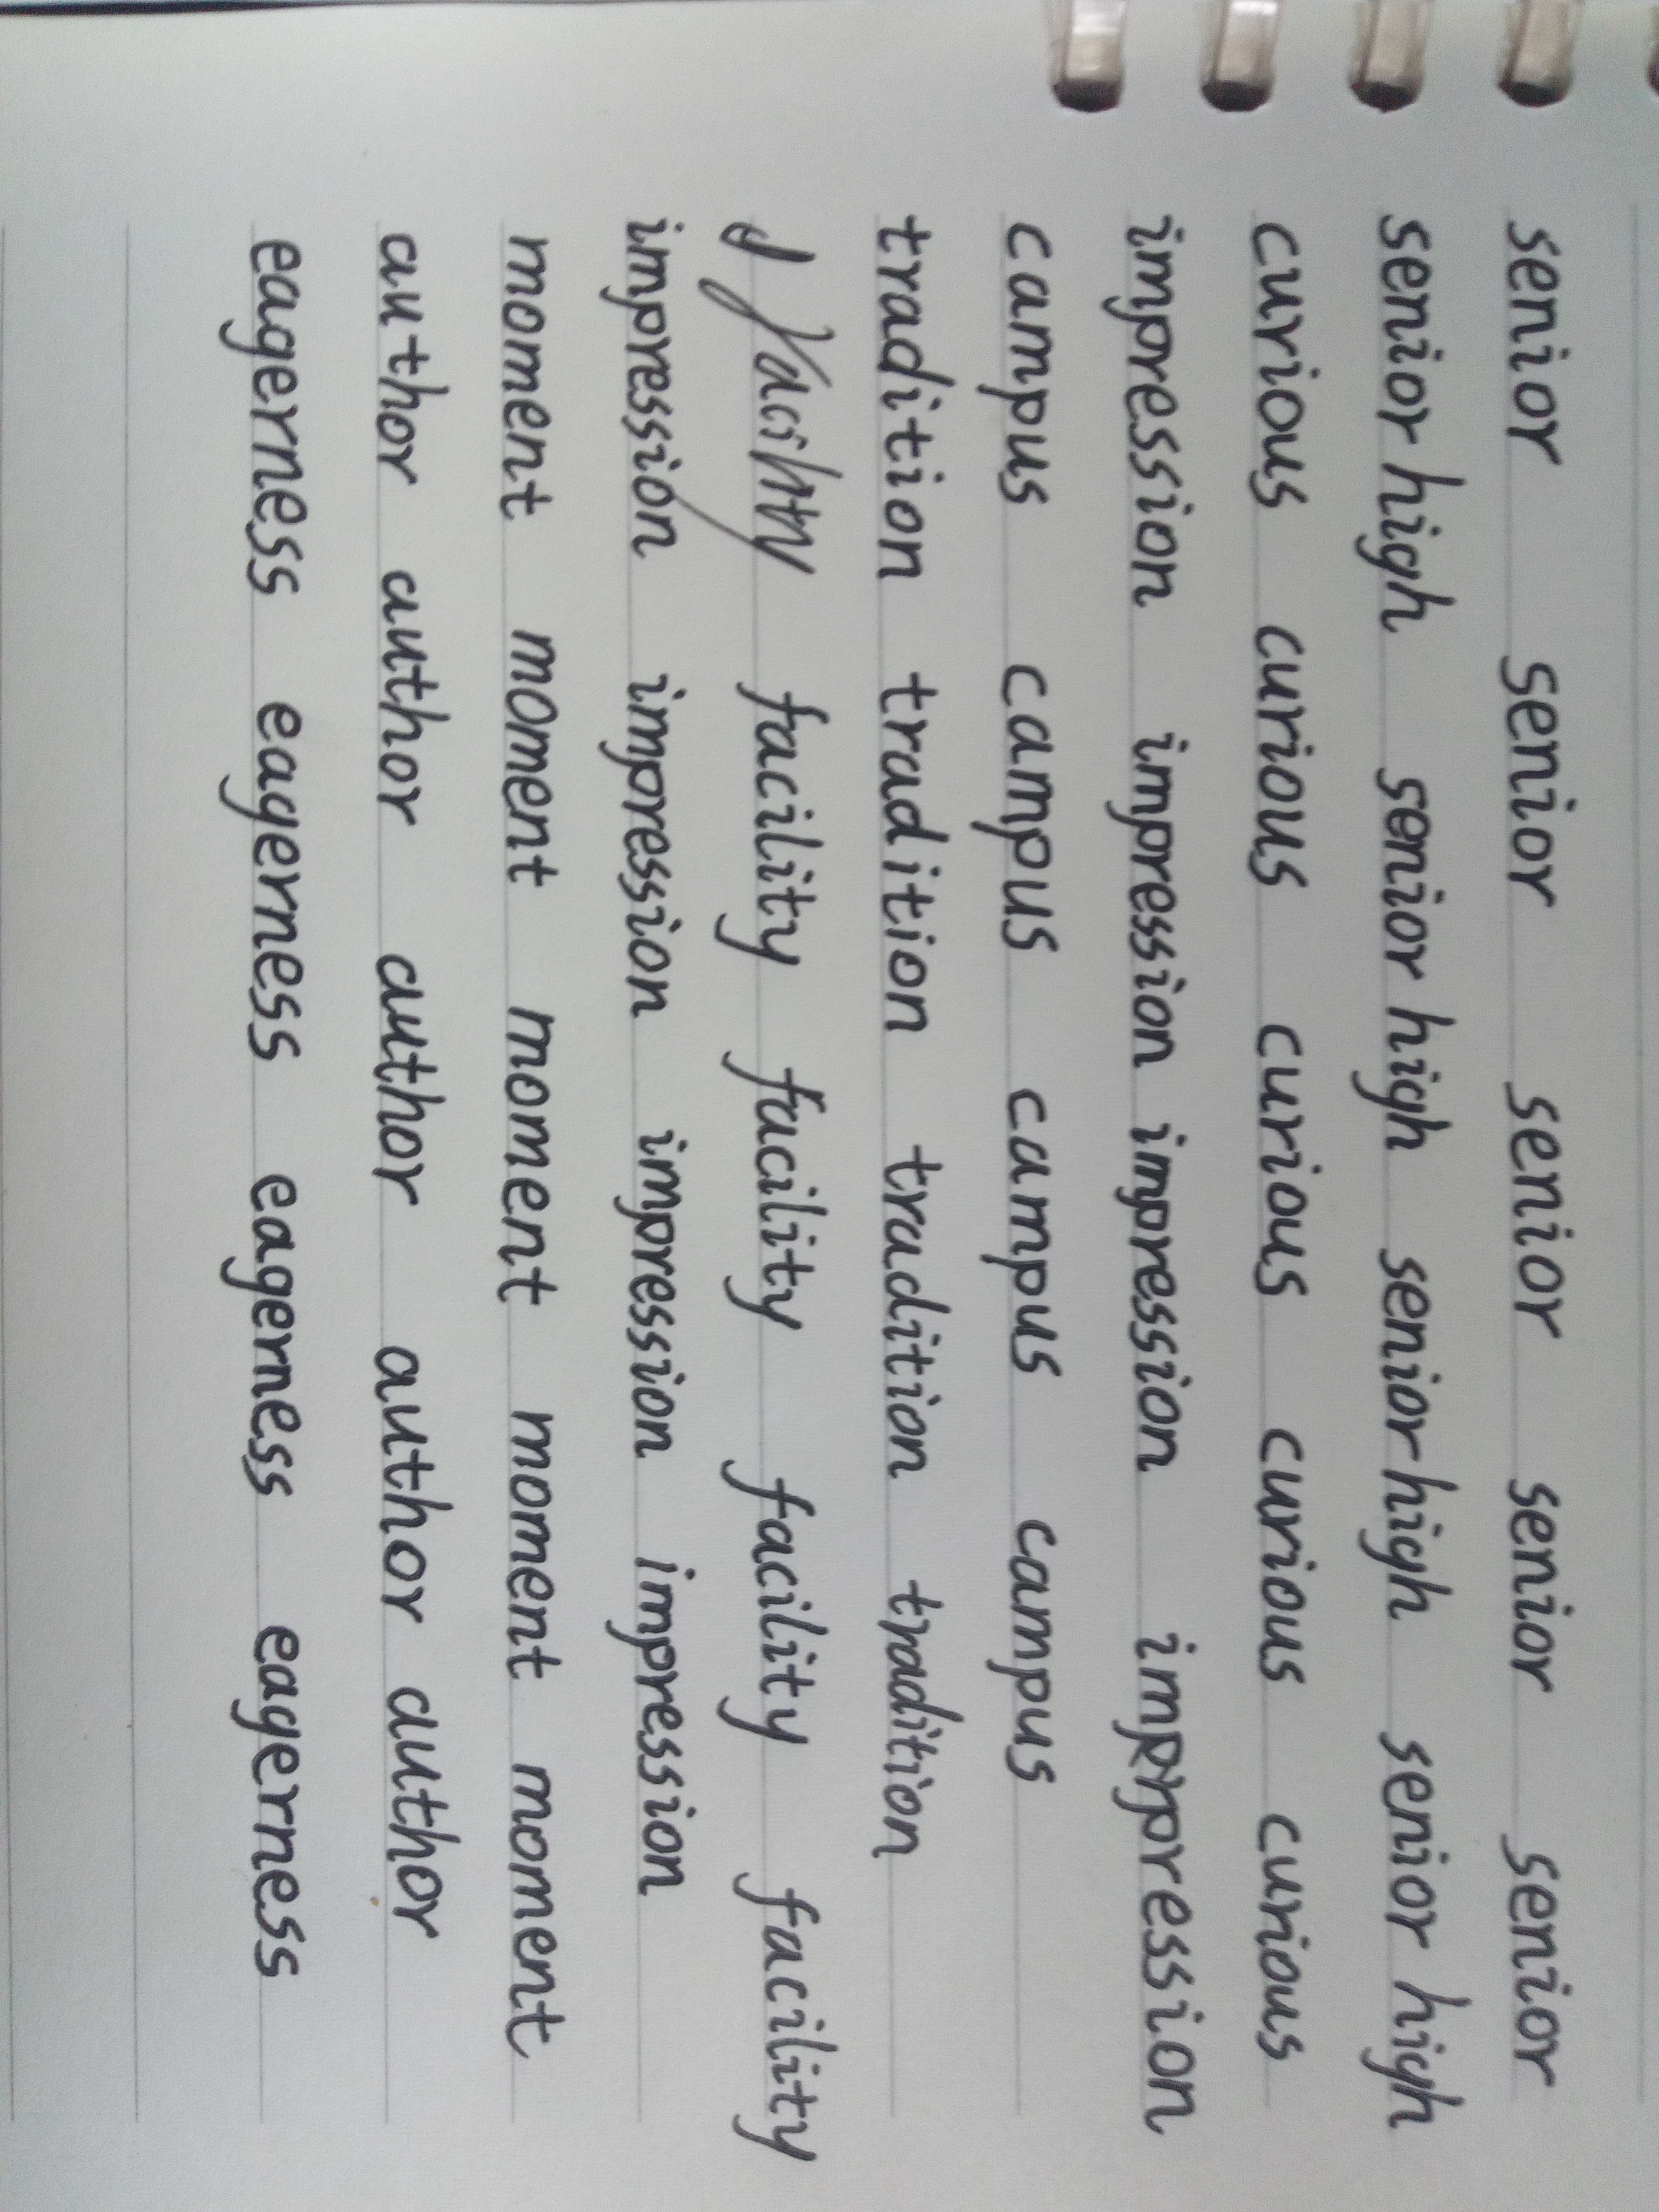 senior senior senior senior senior
senior high senior high senior high senior high
curious curious curious curious curious
impression impression impression imprpression
campus campus campus campus
tradition tradition tradition tradition
facility facility facility facility facility
impression impression impression impression
moment moment moment moment moment
author author author author author
eagerness eagerness eagerness eagerness